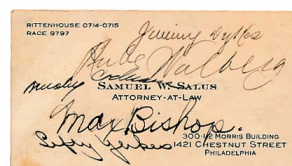 RITTENHOUSE 0714-0715
RACE 9797
Jimmy Dykes
Rube Walberg
SAMUEL W. SALUS
ATTORNEY-AT-LAW
Max Bishop.
300-12 MORRIS BUILDING
1421 CHESTNUT STREET
PHILADELPHIA